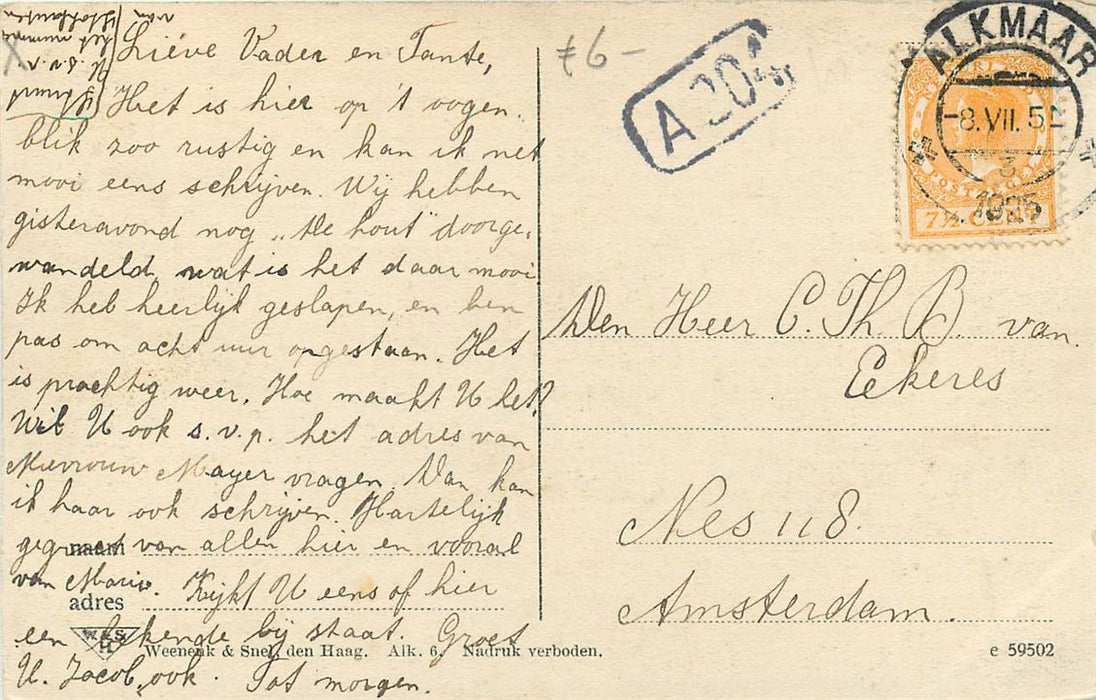 Liéve Vader en Tante,
Het is hier op 't oogen
blik zoo rustig en kan ik net
mooi eens schrijven. Wij hebben
gisteravond nog „De hout" doorge,
wandeld, wat is het daar mooi
Ik heb heerlijk geslapen, en ben
pas om acht uur opgestaan. Het
is prachtig weer. Hoe maakt U het?
Wil U ook s.v.p. het adres van
Mevrouw Mayer vragen. Dan kan
ik haar ook schrijven. Hartelijk
gegroet van allen hier en vooral
naam
van Marie. Kijkt U eens of hier
adres
een bekende bij staat. Groet
U. Jacob ook. Tot morgen.
W & S
H
Weenenk & Snel, den Haag. Alk. 6. Nadruk verboden.
e 59502
van
het nummer
U s.v.v.
f 6 –
A 204
ALKMAAR
-8.VII.5
3
1925
POSTZEGEL
7½ CENT
Den Heer C. Th. B. van
Eekeres
Nes 118.
Amsterdam.